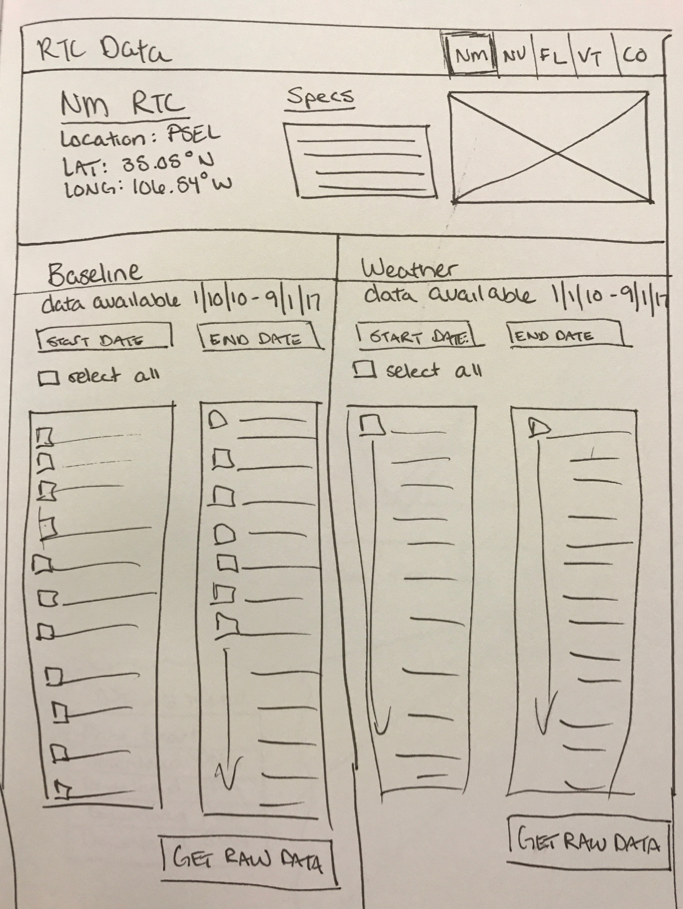 RTC Data
Nm NV FL VT CO
Nm RTC
Location: PSEL
LAT: 35.05°N
LONG: 106.54°W
Specs
Baseline
data available 1/10/10 - 9/1/17
START DATE
END DATE
select all
GET RAW DATA
Weather
data available 1/1/10 - 9/1/17
START DATE
END DATE
select all
GET RAW DATA